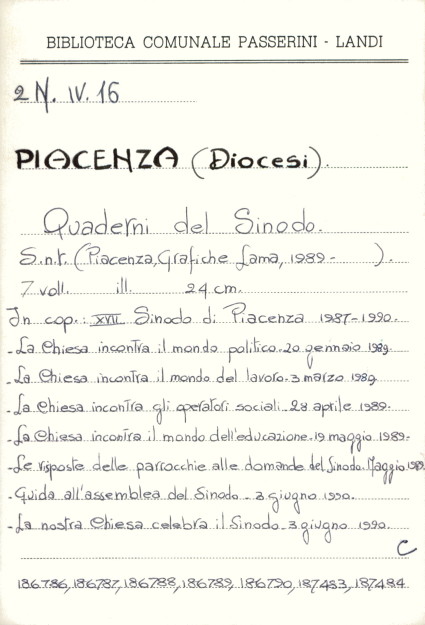 BIBLIOTECA COMUNALE PASSERINI - LANDI
2 N. IV. 16
PIACENZA (Diocesi).
Quaderni del Sinodo.
S.n.t. (Piacenza, Grafiche Lama, 1989-      ).
7 voll.   ill.   24 cm.
In cop.: XVII Sinodo di Piacenza 1987-1990.
-La Chiesa incontra il mondo politico. 20 gennaio 1989.
-La Chiesa incontra il mondo del lavoro. 3 marzo 1989.
-La Chiesa incontra gli operatori sociali. 28 aprile 1989.
-La Chiesa incontra il mondo dell'educazione. 19 maggio 1989.
-Le risposte delle parrocchie alle domande del Sinodo. Maggio 1989.
-Guida all'assemblea del Sinodo - 3 giugno 1990.
-La nostra Chiesa celebra il Sinodo - 3 giugno 1990.
C
186786, 186787, 186788, 186789, 186790, 187483, 187484